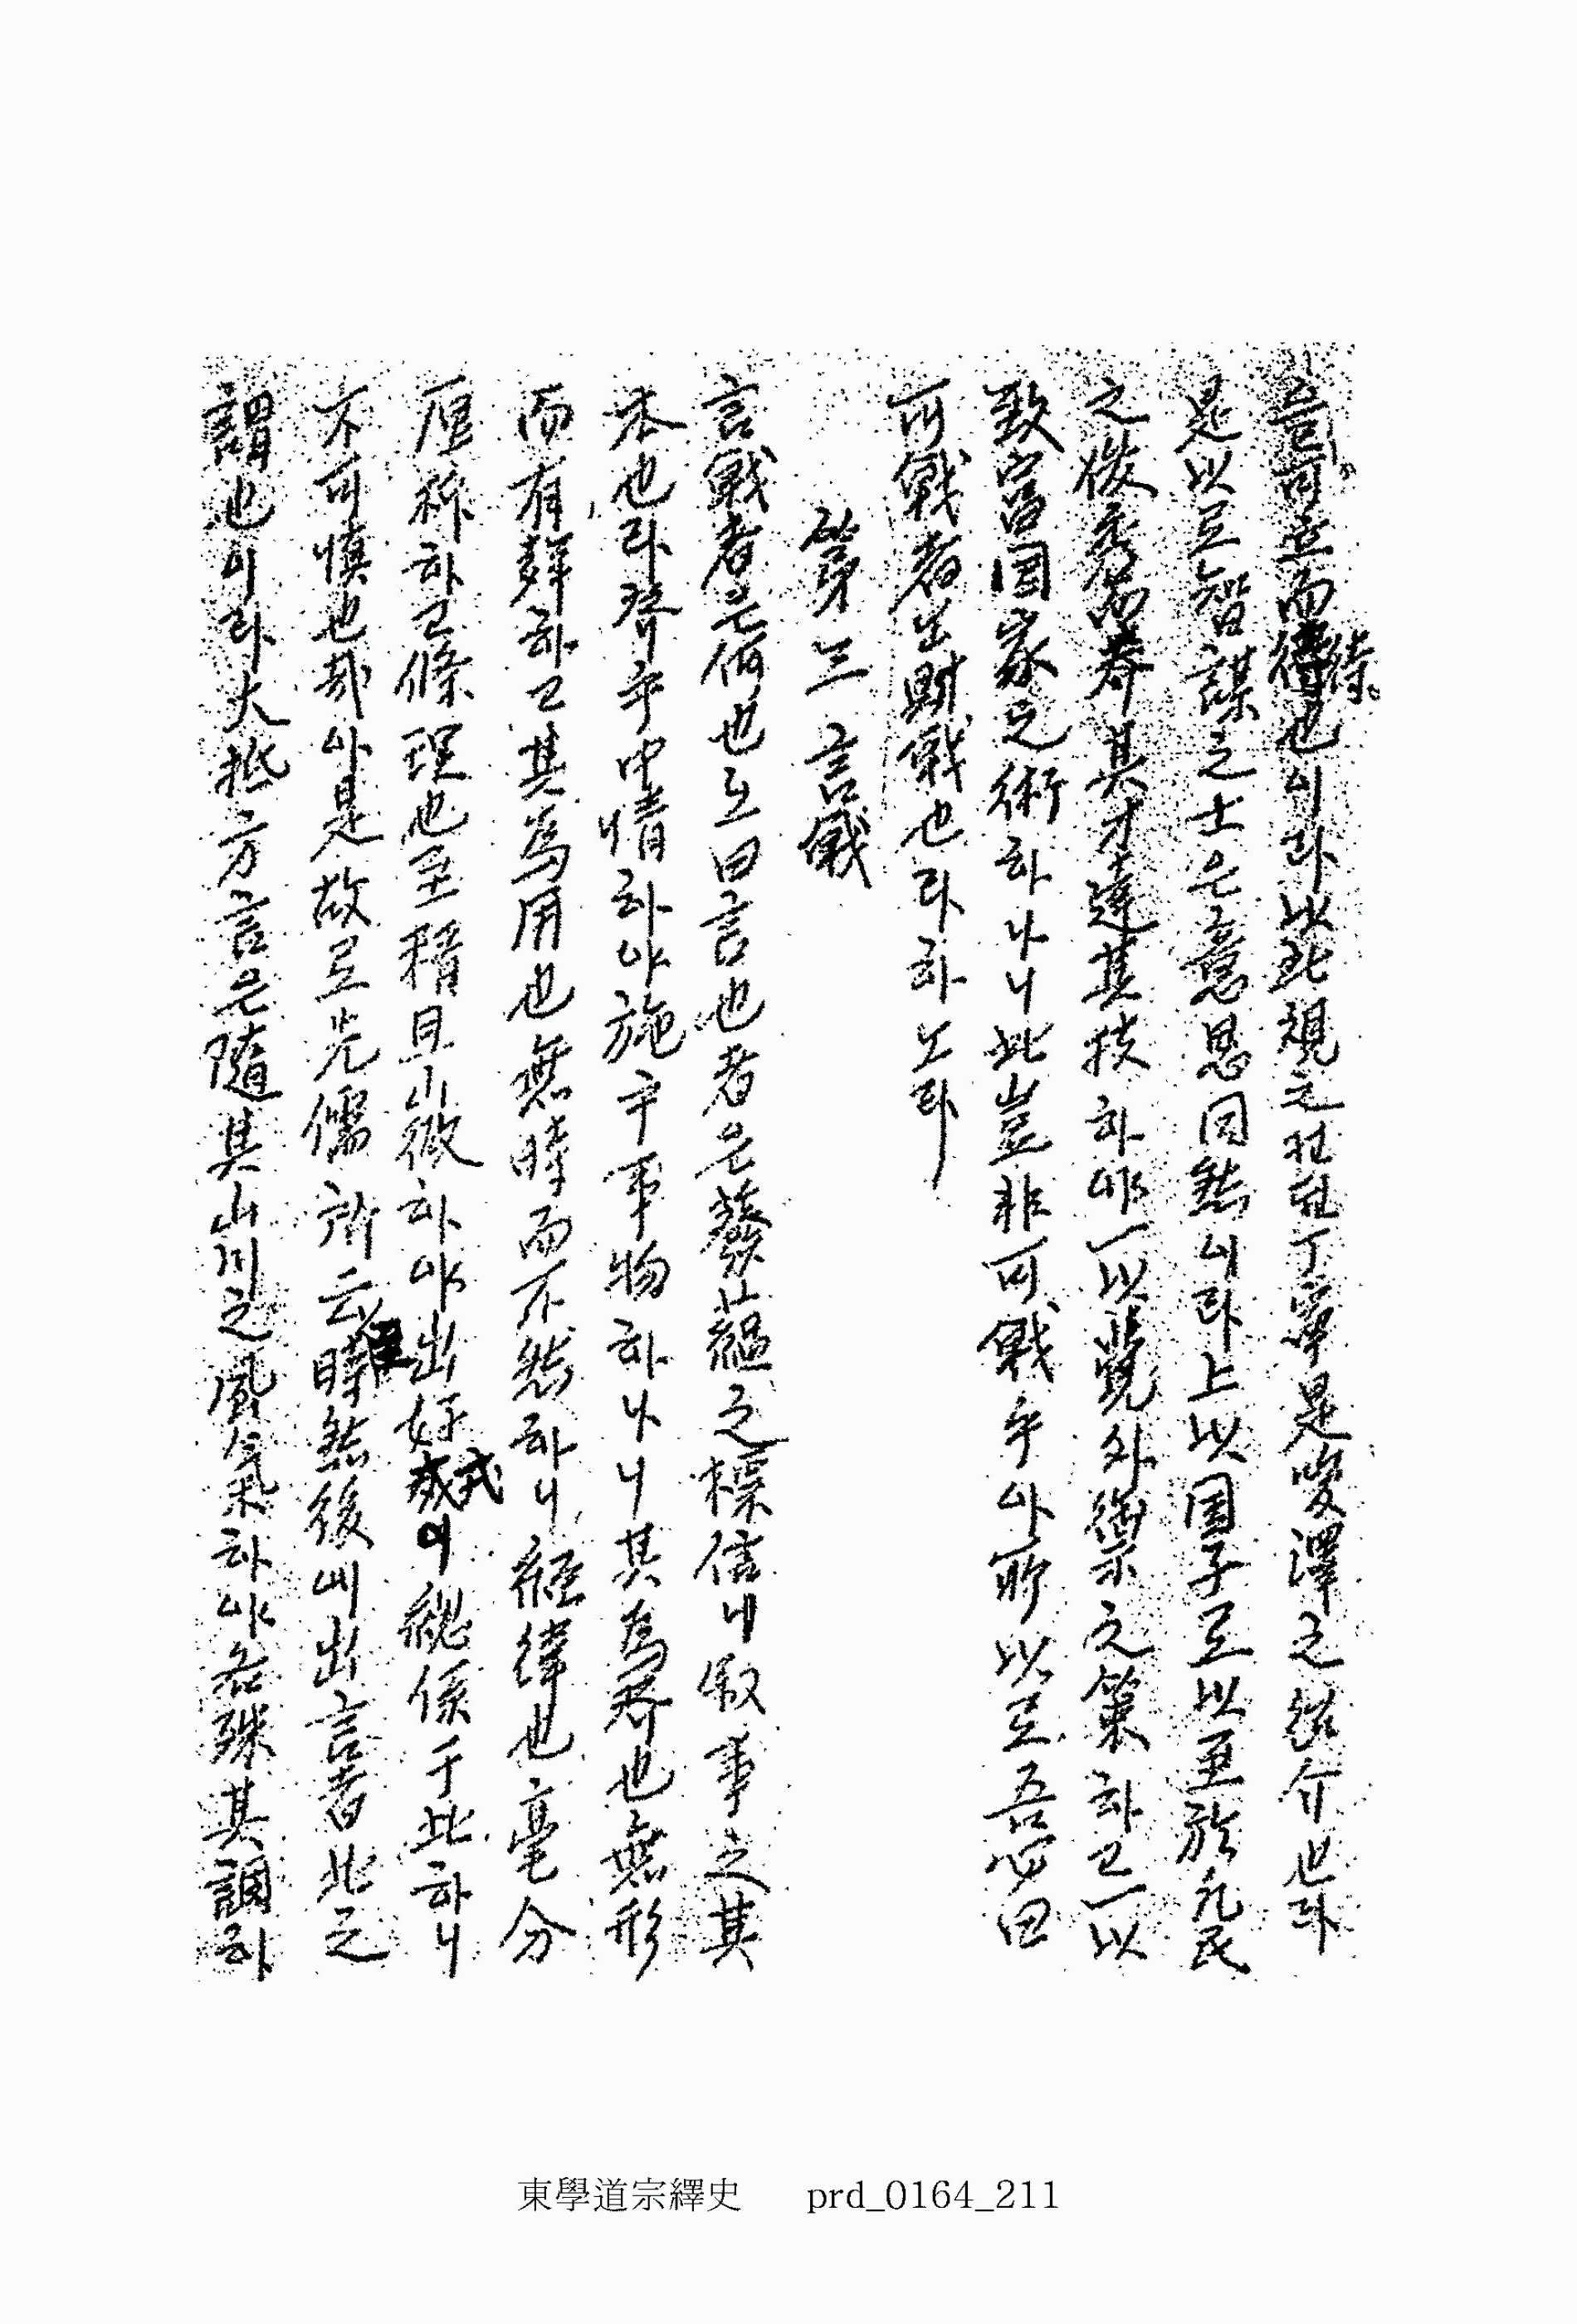 言可立而待也이라以此觀之컨댄丁寧是變澤之紹介也라
是以로智謀之士은意思同然이라上以国子로以至於凡民
之俊秀히养其才達其技하야一以警外禦之策하고一以
致富国家之術하나니此豈非可戰乎아所以로吾必曰
可戰者는財戰也라하노라
第三 言戰
言戰者은何也오曰言也者은發蘊之標信니敍事之其
本也라齐乎中情하야施乎事物하나니其爲齐也無形
而有聲하고其爲用也無時而不然하니經緯也毫分
厘称하고條理也至精且微하야出好戎이總係于此하니
不可愼也哉아是故로先儒所云時然後에出言者此之
謂也이라大抵方言은隨其山川之風氣하야各殊其調하
東學道宗繹史 prd_0164_211